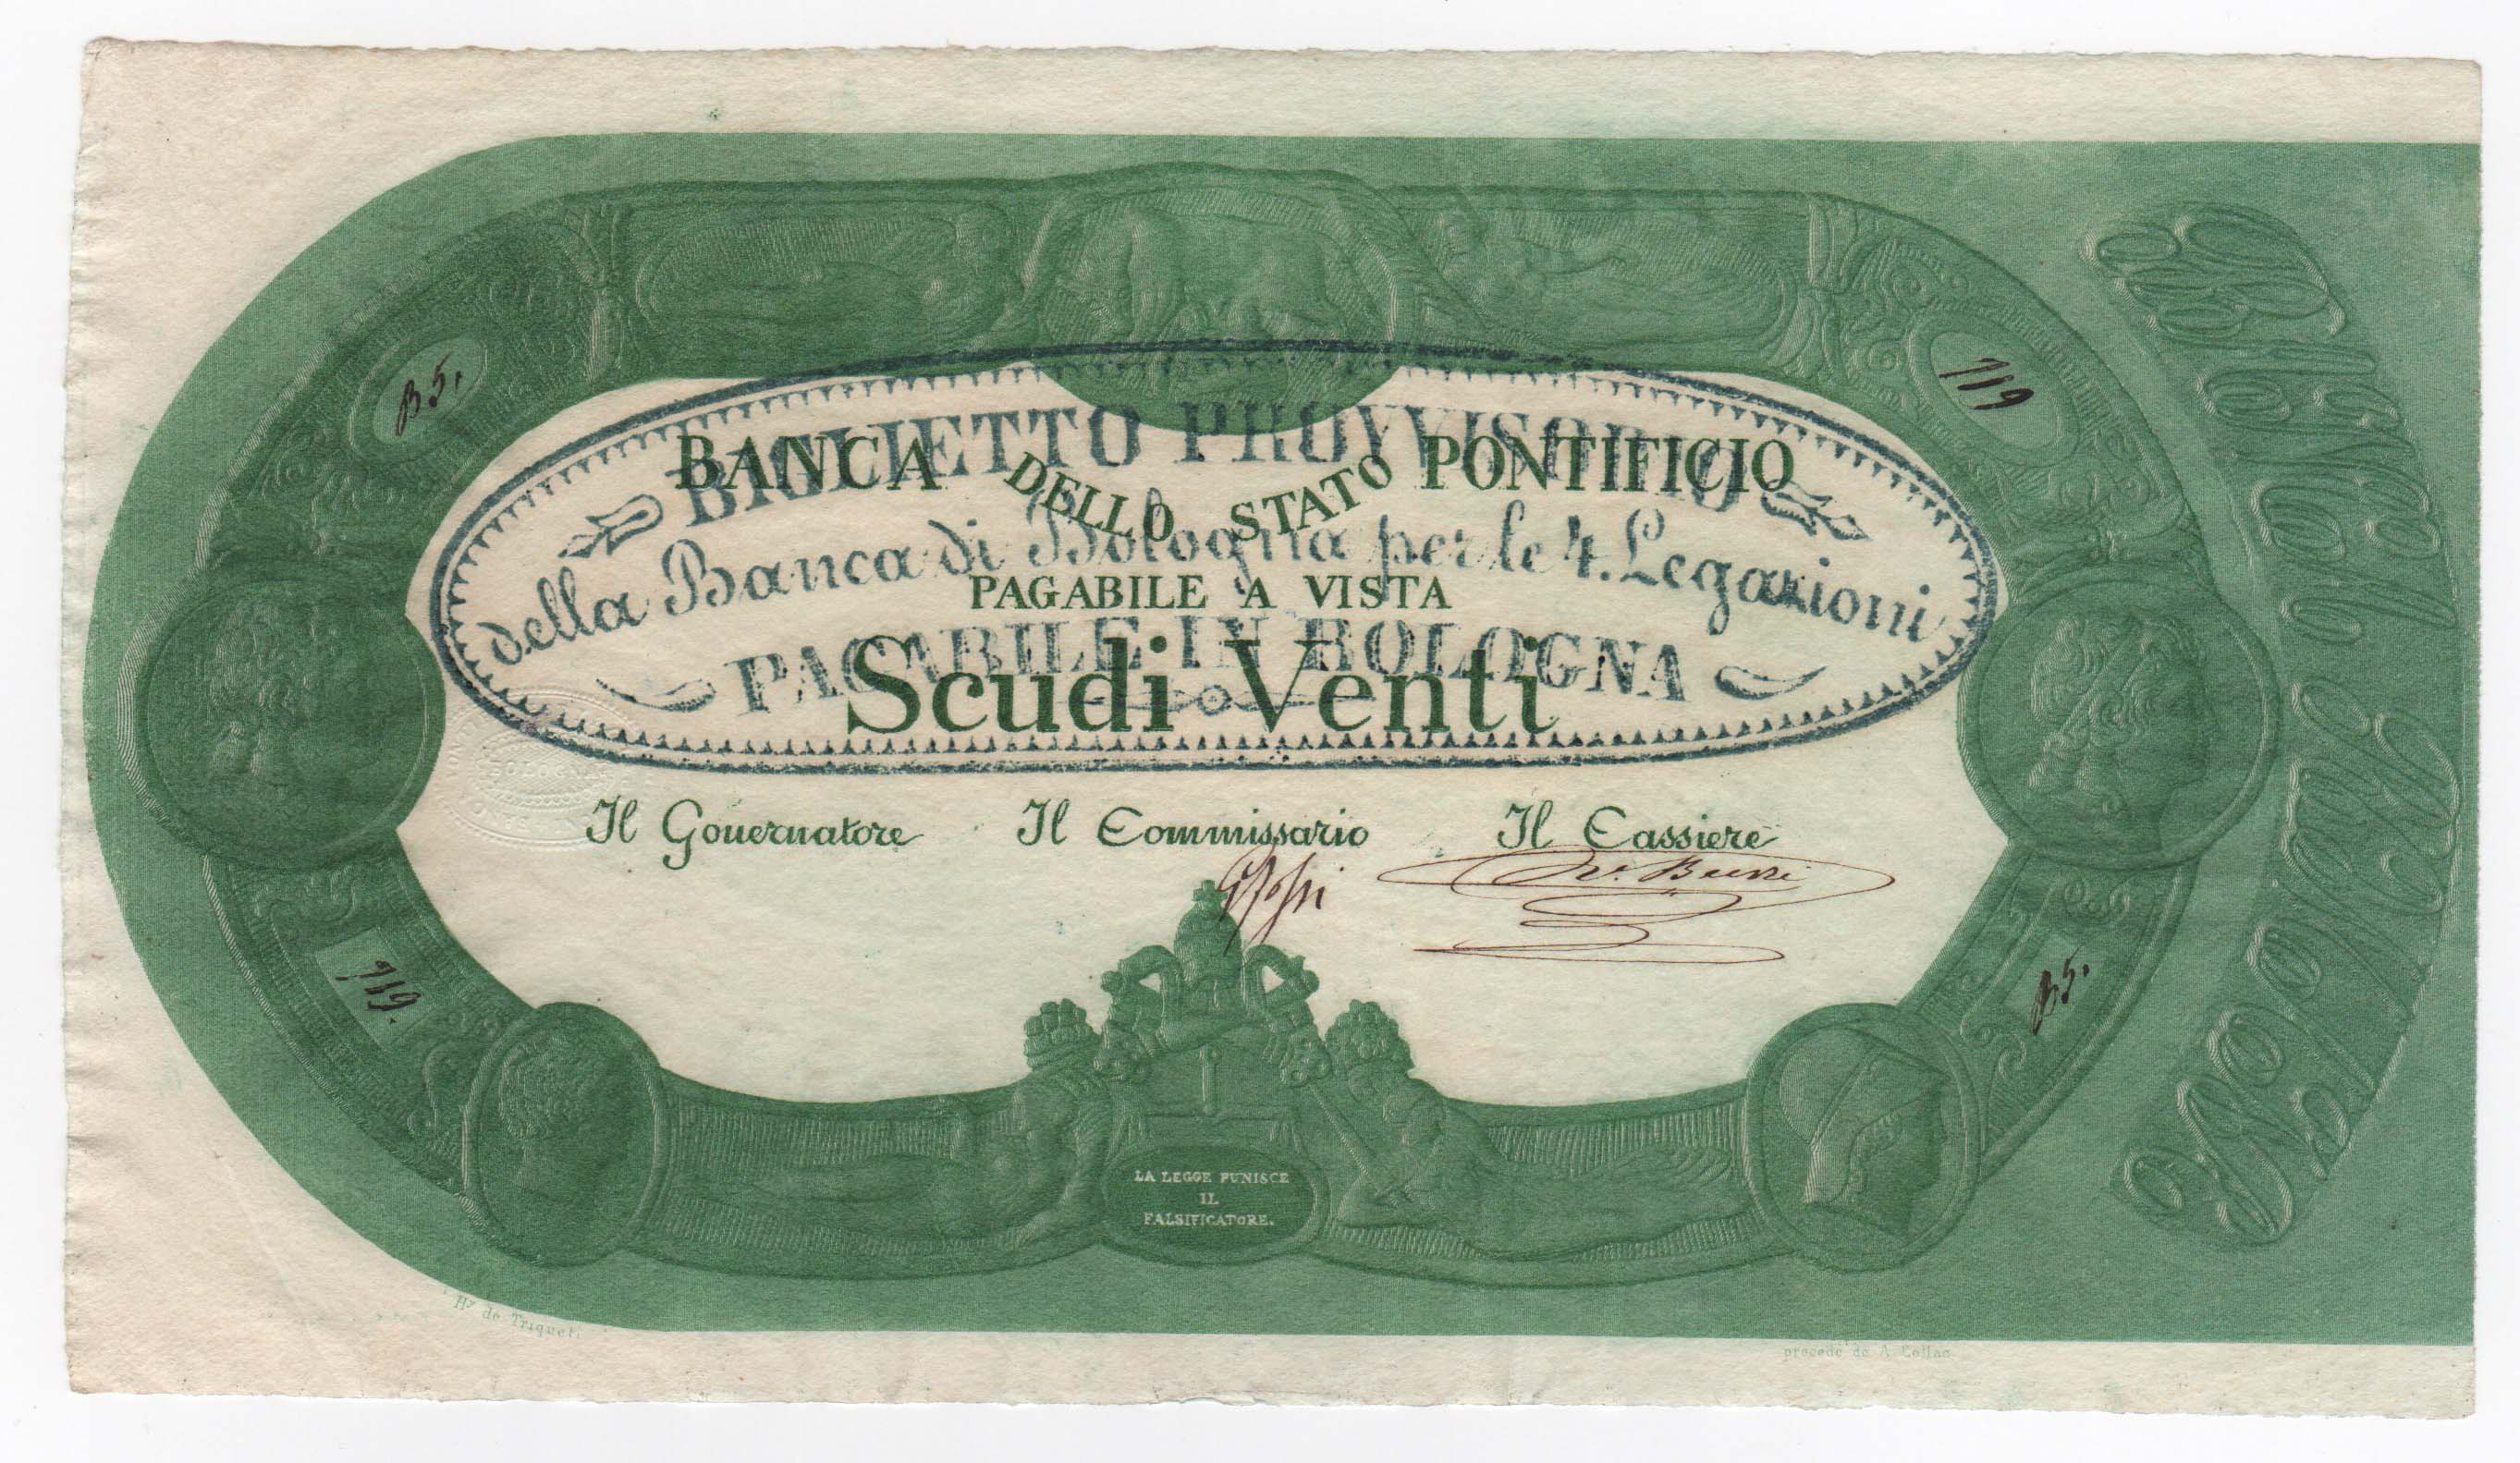 B5.
719
BIGLIETTO PROVVISORIO
BANCA DELLO STATO PONTIFICIO
della Banca di Bologna per le 4. Legazioni
PAGABILE A VISTA
PAGABILE IN BOLOGNA
Scudi Venti
BOLOGNA
Il Governatore Il Commissario Il Cassiere
719.
B5.
LA LEGGE PUNISCE
IL
FALSIFICATORE.
Hy de Triqueti
procédé de A Collas